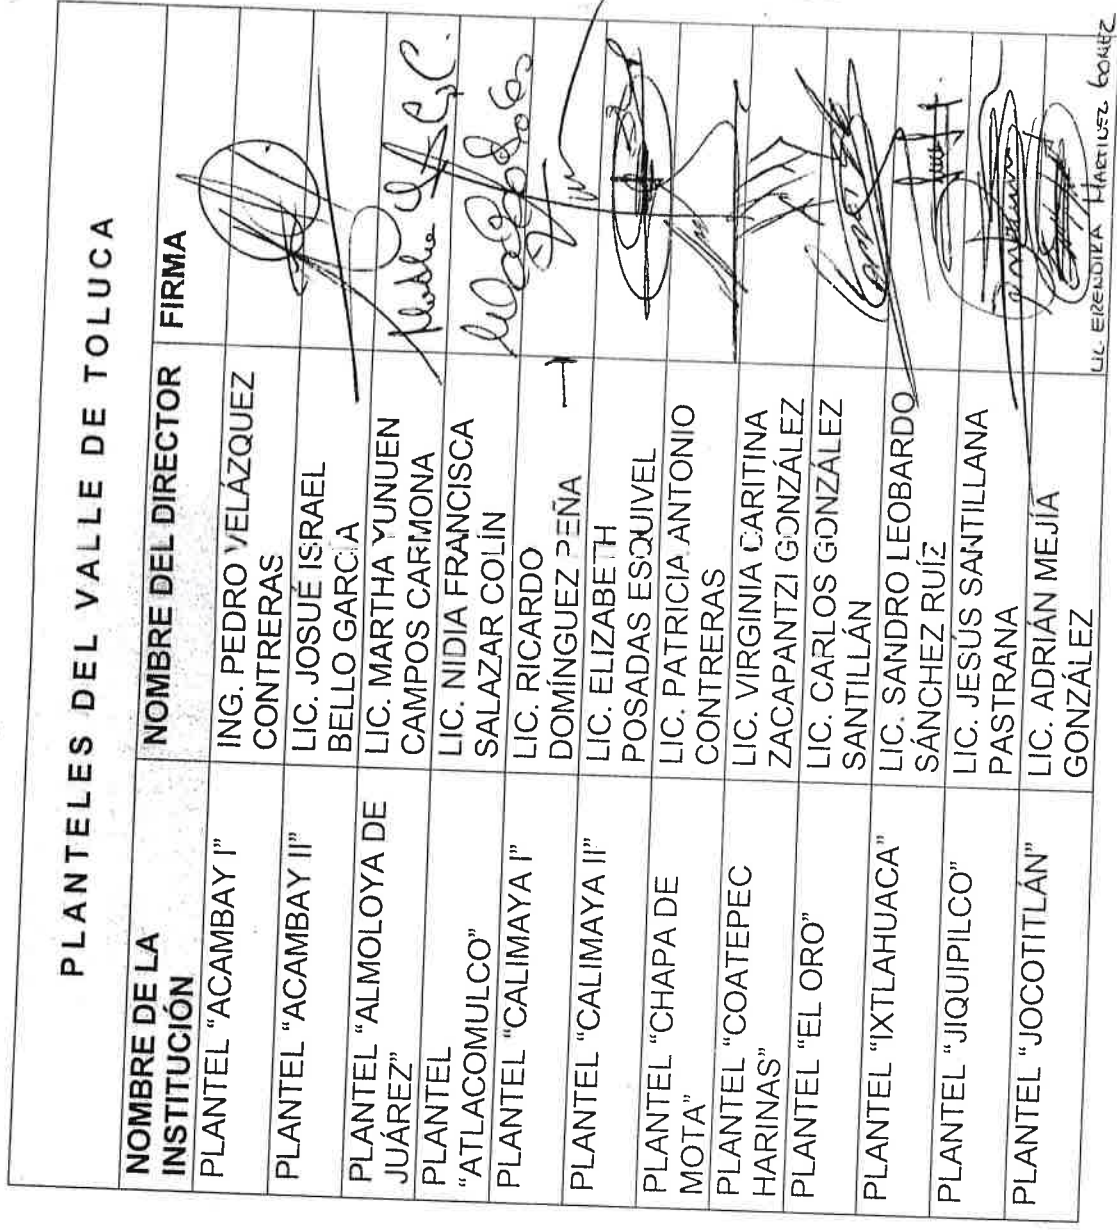 PLANTELES DEL VALLE DE TOLUCA
NOMBRE DE LA
INSTITUCIÓN
NOMBRE DEL DIRECTOR
FIRMA
PLANTEL “ACAMBAY I”
ING. PEDRO VELÁZQUEZ
CONTRERAS
PLANTEL “ACAMBAY II”
LIC. JOSUÉ ISRAEL
BELLO GARCÍA
PLANTEL “ALMOLOYA DE
JUÁREZ”
LIC. MARTHA YUNUEN
CAMPOS CARMONA
PLANTEL
“ATLACOMULCO”
LIC. NIDIA FRANCISCA
SALAZAR COLÍN
PLANTEL “CALIMAYA I”
LIC. RICARDO
DOMÍNGUEZ PEÑA
PLANTEL “CALIMAYA II”
LIC. ELIZABETH
POSADAS ESQUIVEL
PLANTEL “CHAPA DE
MOTA”
LIC. PATRICIA ANTONIO
CONTRERAS
PLANTEL “COATEPEC
HARINAS”
LIC. VIRGINIA CARITINA
ZACAPANTZI GONZÁLEZ
PLANTEL “EL ORO”
LIC. CARLOS GONZÁLEZ
SANTILLÁN
PLANTEL “IXTLAHUACA”
LIC. SANDRO LEOBARDO
SÁNCHEZ RUÍZ
PLANTEL “JIQUIPILCO”
LIC. JESÚS SANTILLANA
PASTRANA
PLANTEL “JOCOTITLÁN”
LIC. ADRIÁN MEJÍA
GONZÁLEZ
LIC ERENDIRA MARTINEZ GOMEZ